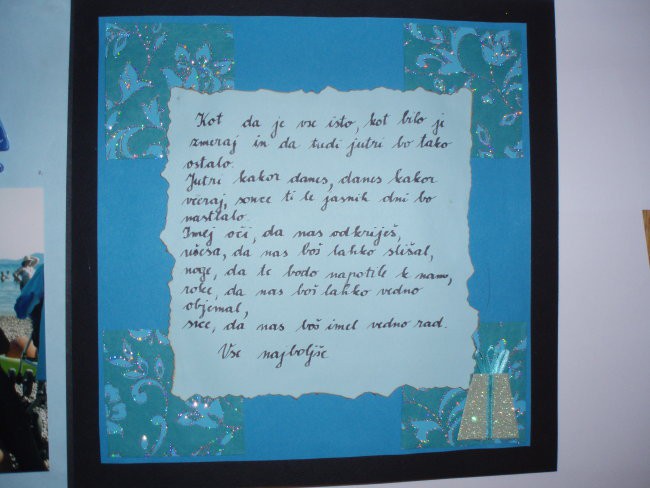 Kot da je vse isto, kot bilo je
zmeraj in da tudi jutri bo tako
ostalo.
Jutri kakor danes, danes kakor
včeraj, sonce ti le jasnih dni bo
nastlalo.
Imej oči, da nas odkriješ,
ušesa, da nas boš lahko slišal,
noge, da te bodo napotile k nam,
roke, da nas boš lahko vedno
objemal,
srce, da nas boš imel vedno rad.
Vse najboljše